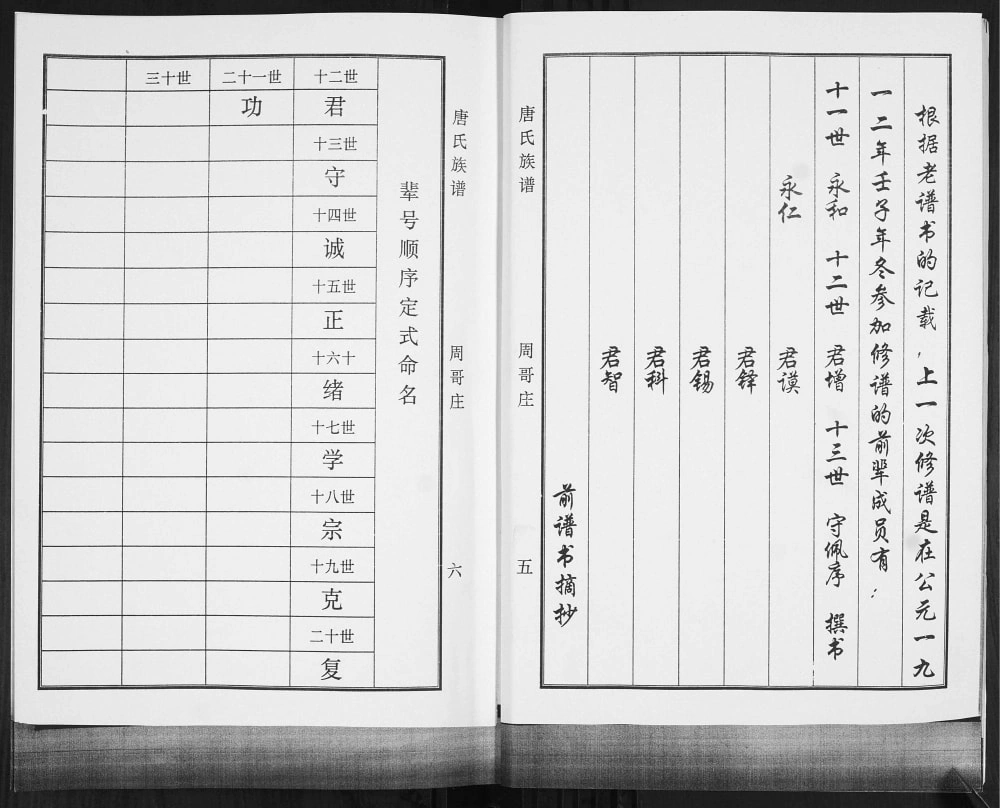 根据老谱书的记载，上一次修谱是在公元一九
一二年壬子年冬参加修谱的前辈成员有：
十一世 永和 十二世 君增 十三世 守佩序 撰书
永仁 君谟
君铎
君锡
君科
君智
前谱书摘抄
唐氏族谱 周哥庄 五
唐氏族谱 周哥庄 六
辈号顺序定式命名
十二世
君
十三世
守
十四世
诚
十五世
正
十六十
绪
十七世
学
十八世
宗
十九世
克
二十世
复
二十一世
功
三十世